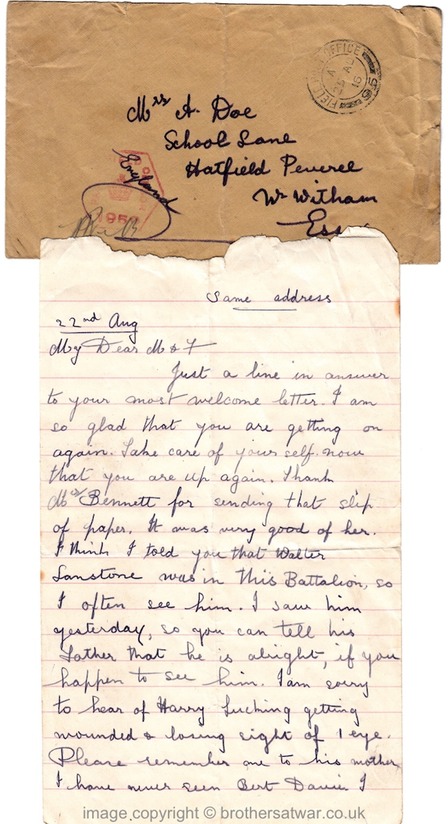 FIELD POST OFFICE
A
AU
Mrs A. Doe
School Lane
Hatfield Peverel
Nr Witham
Ess
England
195
Same address
22nd Aug
My Dear M & F
Just a line in answer
to your most welcome letter. I am
so glad that you are getting on
again. Take care of your self now
that you are up again. Thank
Mrs Bennett for sending that slip
of paper. It was very good of her.
I think I told you that Walter
Lanstone was in this Battalion, so
I often see him. I saw him
yesterday, so you can tell his
Father that he is alright, if you
happen to see him. I am sorry
to hear of Harry Lucking getting
wounded & losing sight of 1 eye.
Please remember me to his mother
I have never seen Bert Davis I
image copyright © brothersatwar.co.uk